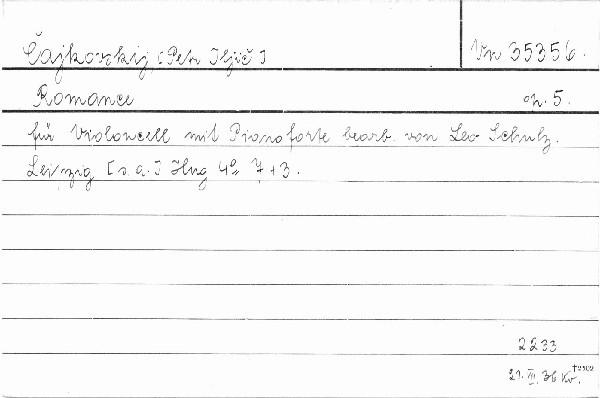 Čajkovskij, [Petr Iljič] Vn 35356.
Romance op. 5.
für Violoncell mit Pianoforte bearb. von Leo Schulz.
Leipzig [s. a.] Hug 4° 7+3.
2233
21. III. 36 Kv. †2902